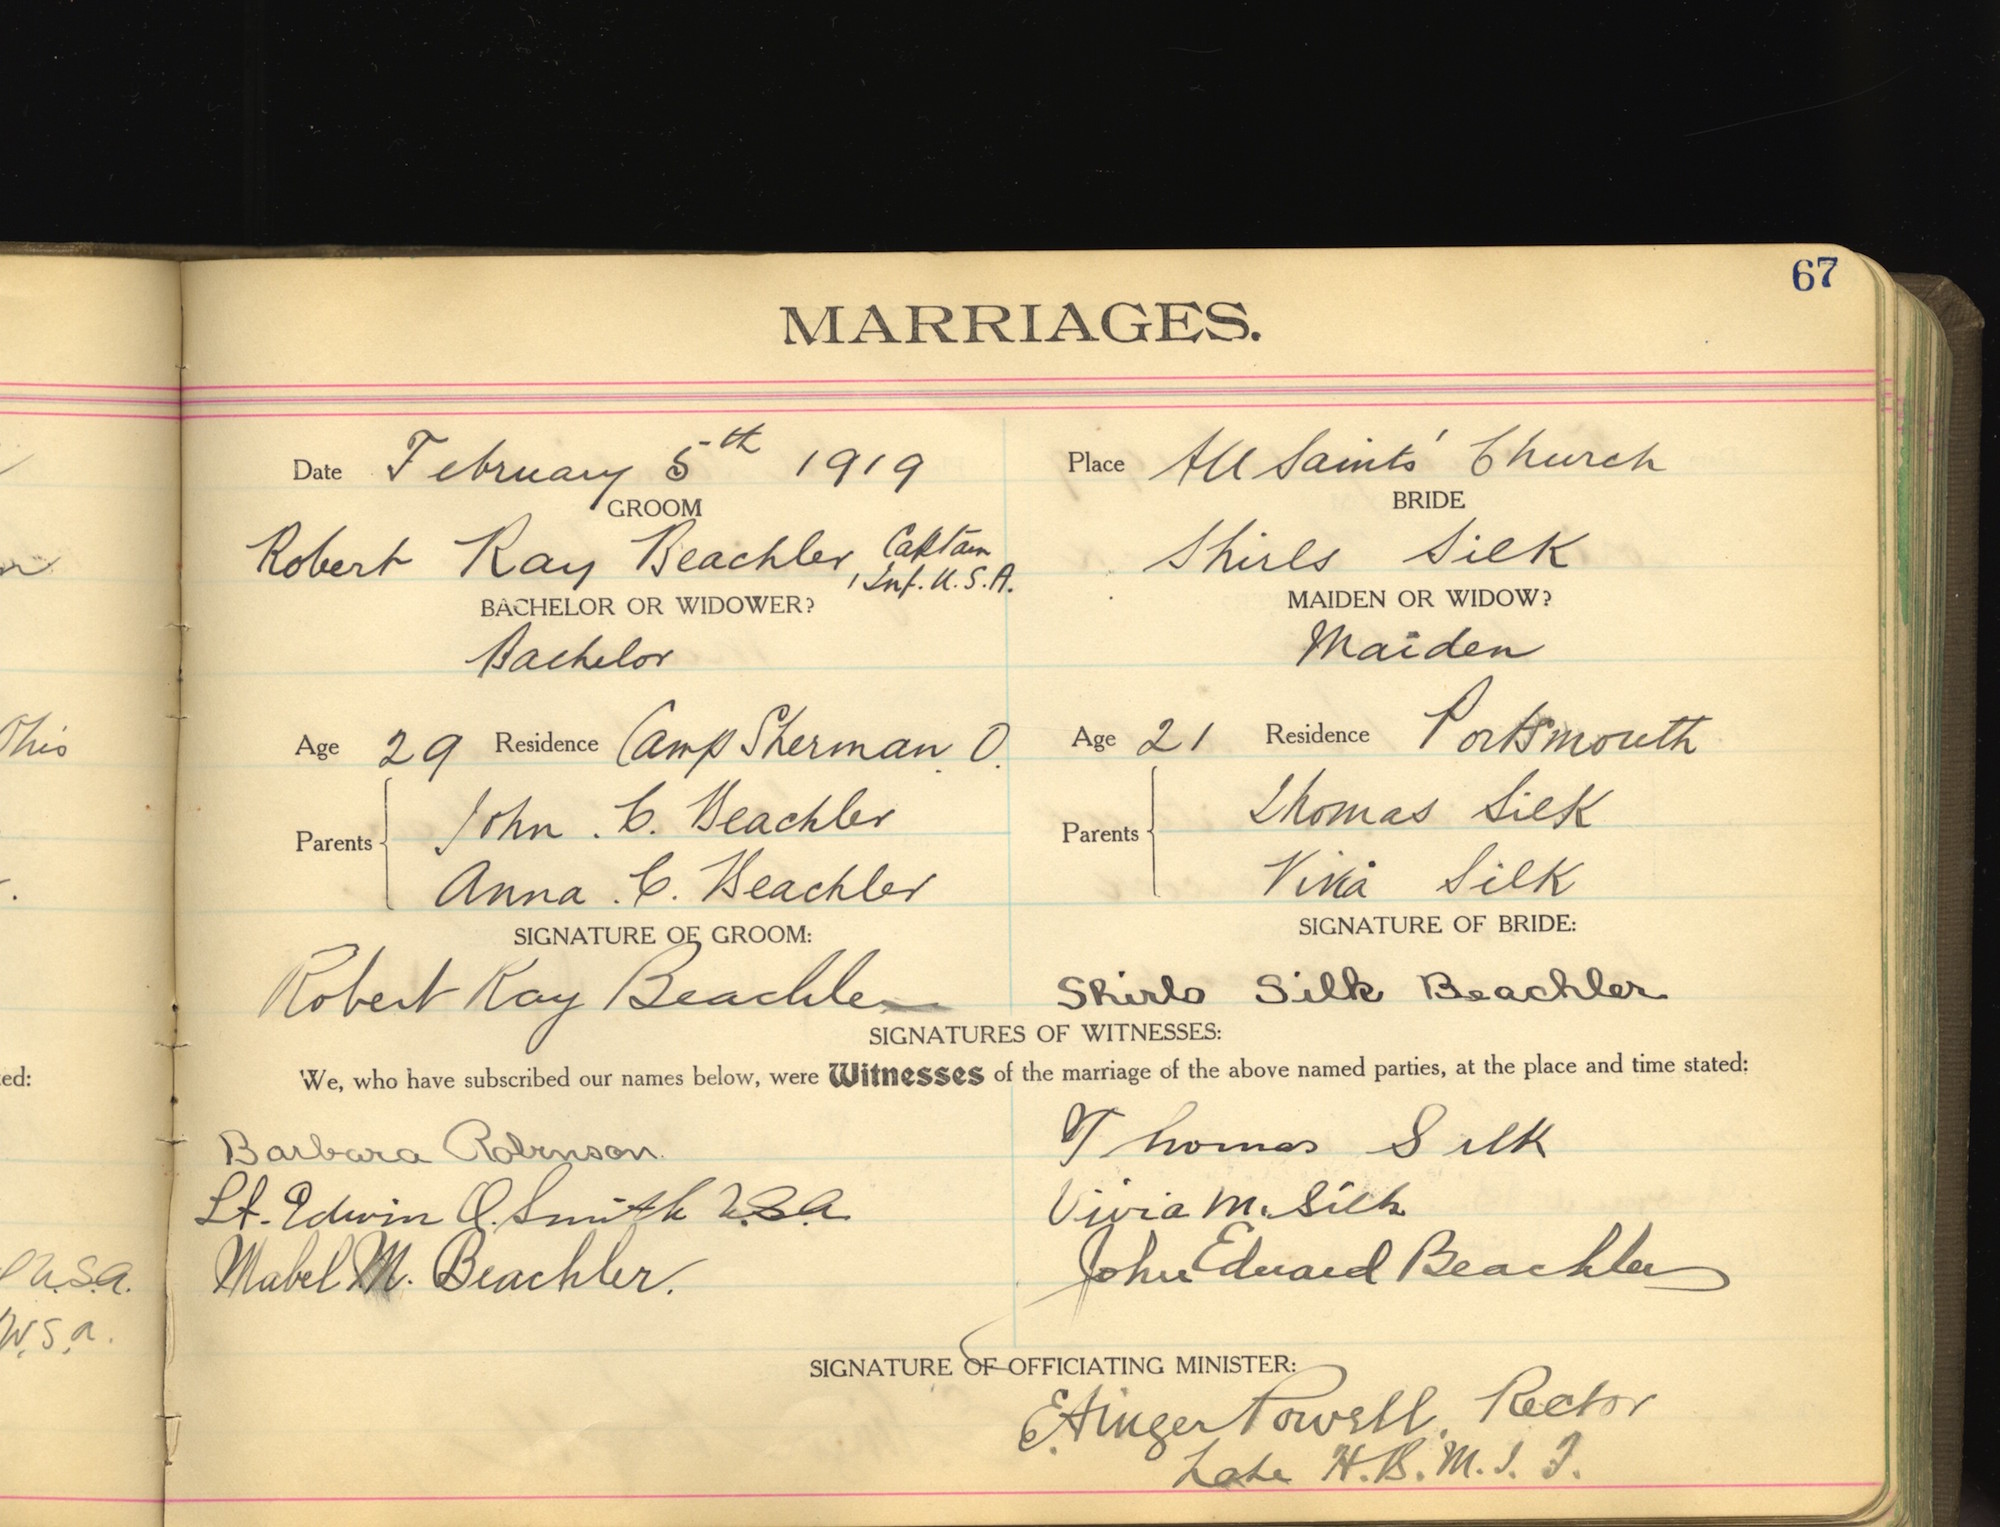 67
MARRIAGES.
Date February 5th 1919 Place All Saints' Church
GROOM BRIDE
Robert Ray Beachler, Captain Inf. U.S.A. Shirls Silk
BACHELOR OR WIDOWER? MAIDEN OR WIDOW?
Bachelor Maiden
Age 29 Residence Camp Sherman. O. Age 21 Residence Portsmouth
Ohio
Parents John. C. Beachler Parents Thomas Silk
Anna. C. Beachler Silk
SIGNATURE OF GROOM: SIGNATURE OF BRIDE:
Robert Ray Beachler Shirls Silk Beachler
SIGNATURES OF WITNESSES:
ed: We, who have subscribed our names below, were Witnesses of the marriage of the above named parties, at the place and time stated:
Barbara Robinson. Thomas Silk
Lt. Edwin O. Smith U.S.A. Vivia M. Silk
U.S.A. Mabel M. Beachler. John Edward Beachler
W.S.A.
SIGNATURE OF OFFICIATING MINISTER:
Powell, Rector
Late H.B.M.I.F.